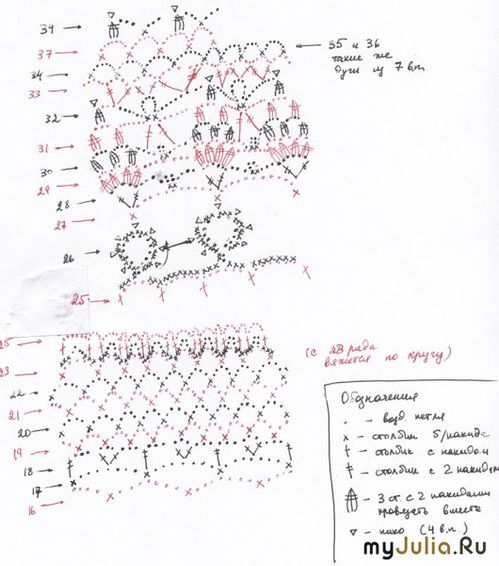 39
37
35 и 36
такие же
дуги из 7 в.п.
34
33
32
31
30
29
28
27
26
25
25
(с 23 ряда
вяжется по кругу)
23
22
21
20
19
18
17
16
Обозначения
. - возд петля
x - столбик б/накида
† - столбик с накидом
‡ - столбик с 2 накидам
- 3 ст. с 2 накидами
провязать вместе
▽ - пико (4 в.п.)
myJulia.Ru